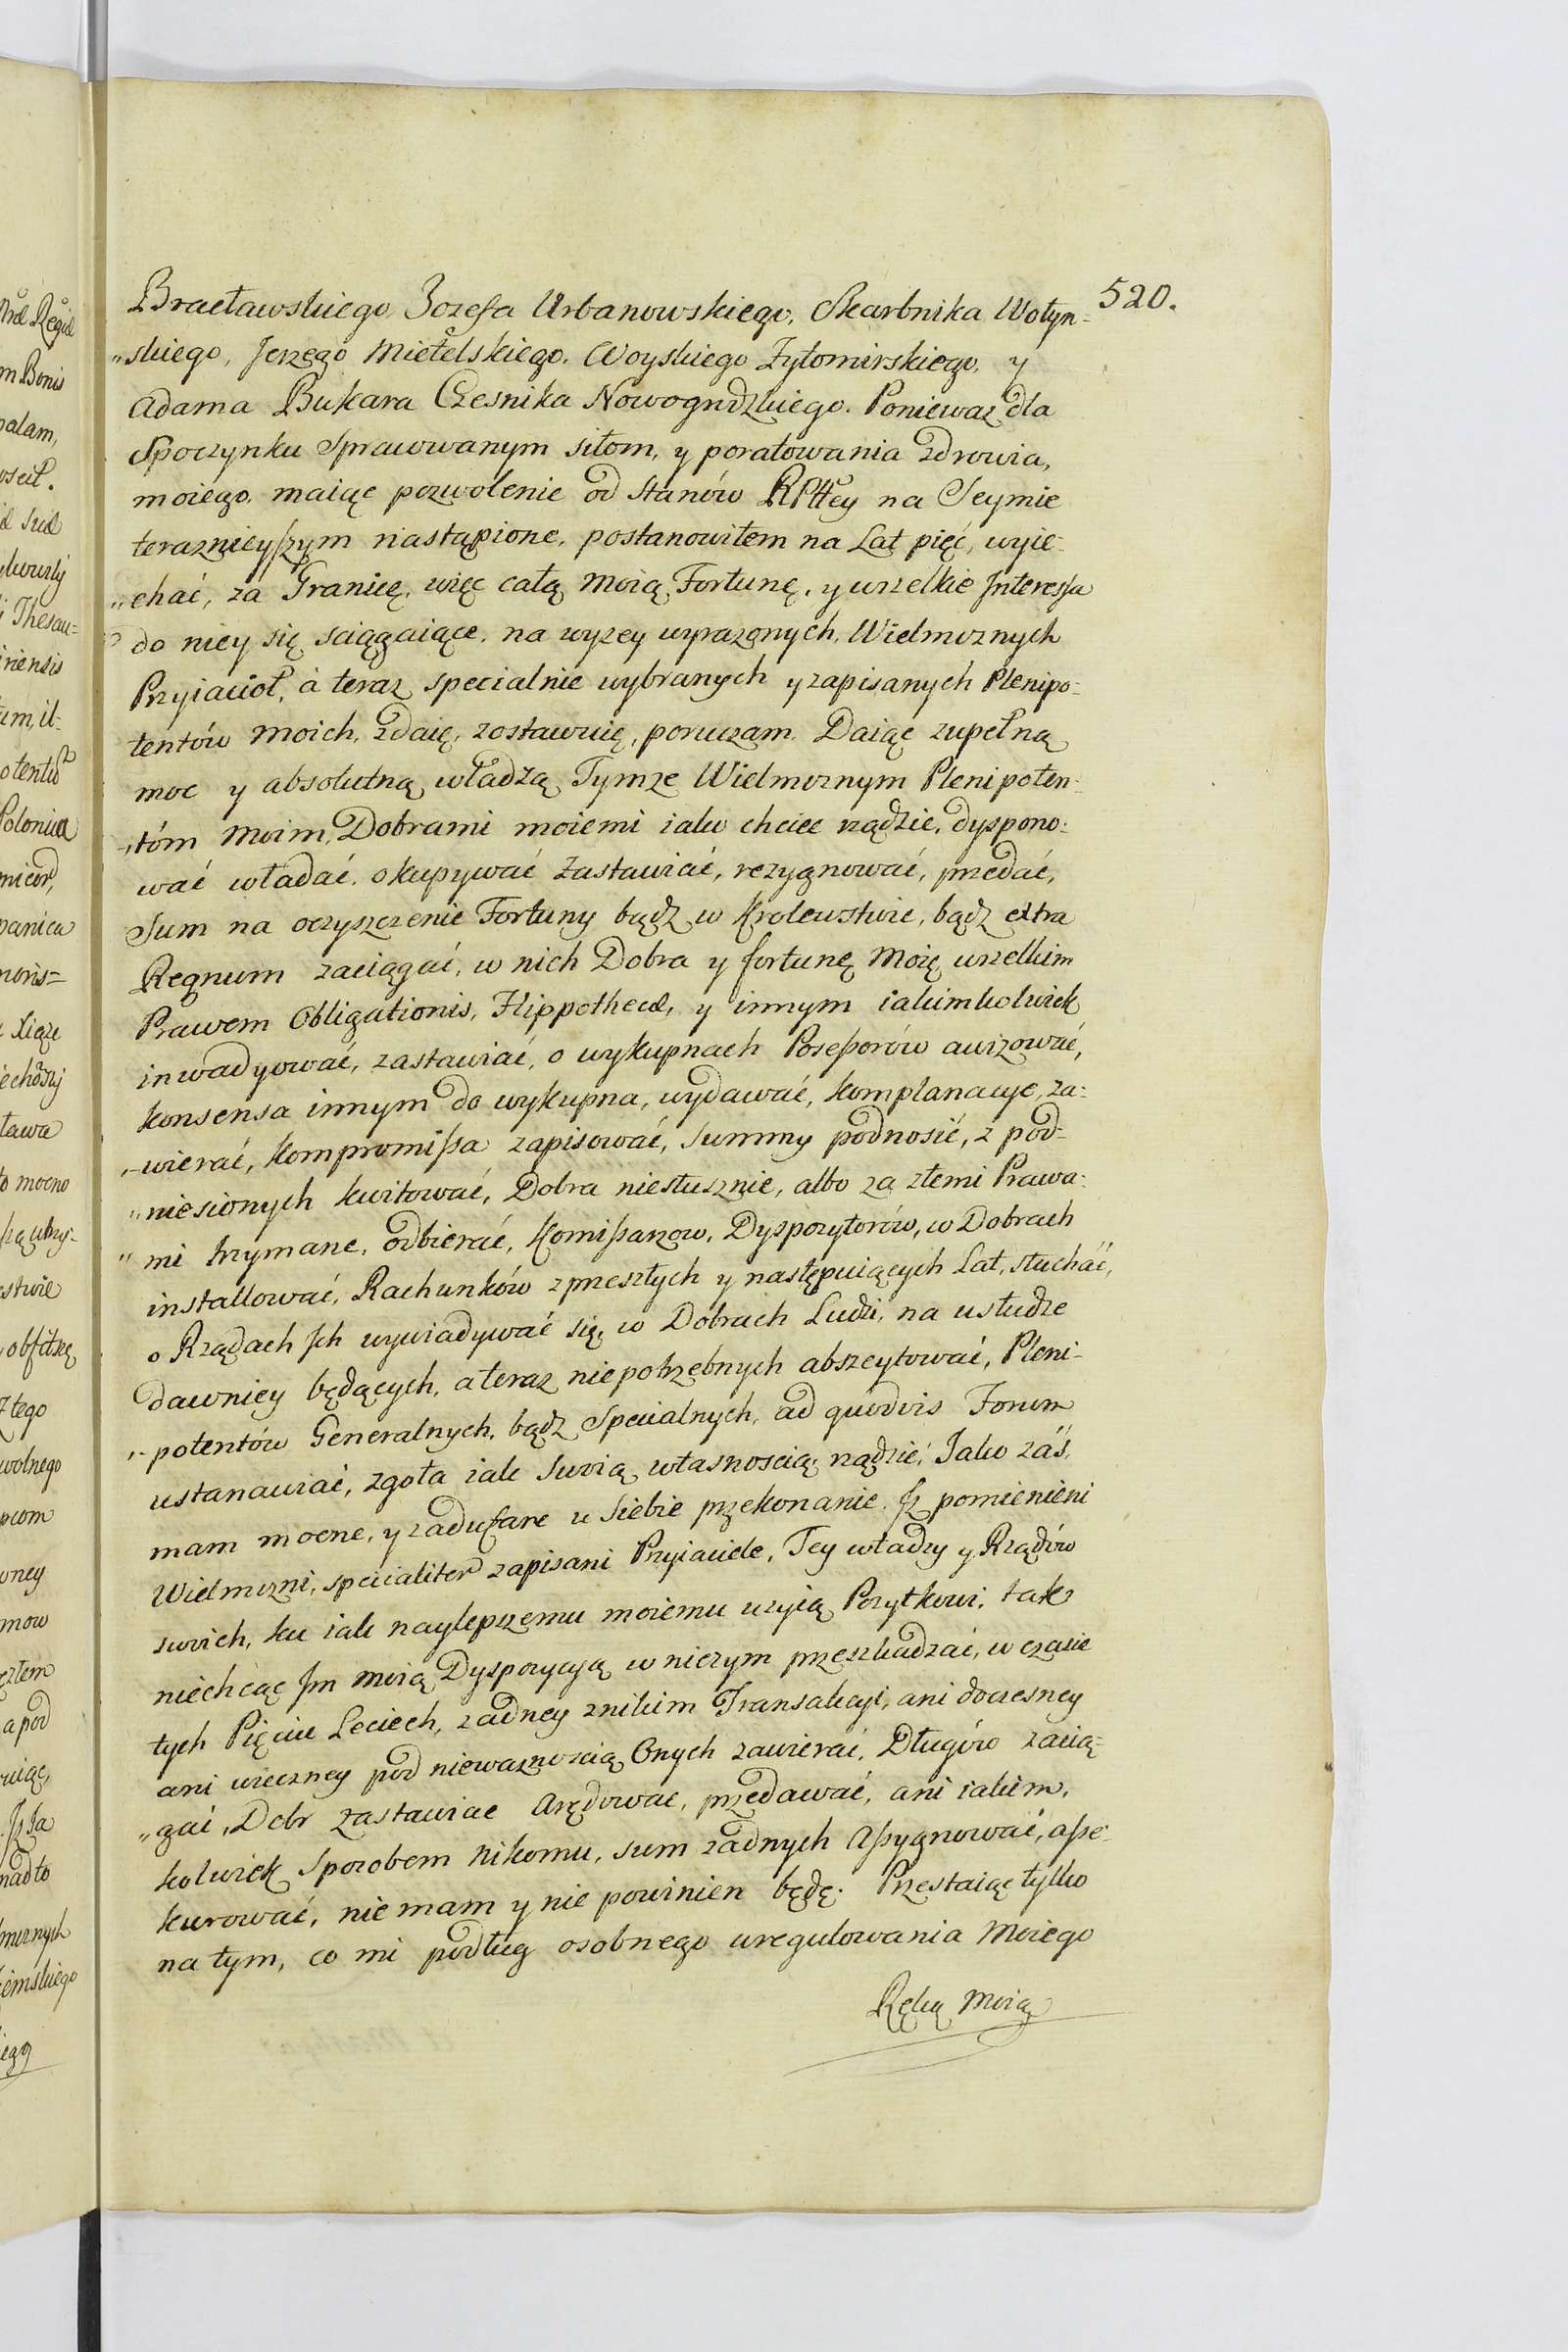 520.
Bracławskiego, Jozefa Urbanowskiego, Skarbnika Wołyn-
„skiego, Jerzego Mietelskiego, Woyskiego Zytomirskiego, y
Adama Bukara Czesnika Nowogrdzkiego. Poniewaz dla
Spoczynku Sprawowanym siłom, y poratowania zdrowia,
moiego, maiąc pozwolenie od Stanów RPttey na Seymie
teraznieyszym nastąpione, postanowiłem na Lat pięć, wyie-
„chać, za Granicę, więc całą moią Fortunę, y wszelkie Interessa
do niey się sciągaiące, na wyzey wyrazonych, Wielmoznych
Przyiacioł, à teraz specialnie wybranych y zapisanych Plenipo-
tentów moich, zdaię, zostawuię, poruczam. Daiąc zupełną
moc y absolutną władzą Tymze Wielmoznym Plenipoten-
„tóm moim, Dobrami moiemi iako chcieć rządzić, dyspono-
wać władać, okupywać zastawiać, rezygnować, przedać,
Sum na oczyszczenie Fortuny bądz w Krolewstwie, bądz extra
Regnum zaciągać, w nich Dobra y fortunę moię wszelkim
Prawem Obligationis, Hippothecæ, y innym iakimkolwiek
inwadyować, zastawiać, o wykupnach Posessorów awizować,
konsensa innym do wykupna, wydawać, komplanacye, za-
„wierać, kompromissa zapisować, summy podnosić, z pod-
„niesionych kwitować, Dobra niesłusznie, albo za złemi Prawa-
„mi trzymane, odbierać, Komissarzow, Dyspozytorów, w Dobrach
installować, Rachunków z przeszłych y następuiących Lat, słuchać,
o Rządach Jch wywiadywać się, w Dobrach Ludzi, na usłudze
dawniey będących, a teraz niepotrzebnych abszeytować, Pleni-
„potentów Generalnych, bądz Specialnych, ad quodvis Forum
ustanawiać, zgoła iak swoią własnoscią rządzić. Jako zaś,
mam mocne, y zadufane u siebie przekonanie, Jz pomienieni
Wielmozni, specialiter zapisani Przyiaciele, Tey władzy y Rządów
swoich, ku iak naylepszemu moiemu uzyią Pozytkowi, tak
niechcąc Jm moią Dyspozycyią w niczym przeszkadzać, w czasie
tych Pięciu Leciech, zadney znikim Transakcyi, ani doczesney
ani wieczney pod niewaznoscią Onych zawierać, Długów zacią-
„gać, Dobr zastawiac Arędować, przedawać, ani iakim,
kolwiek sposobem nikomu, sum zadnych Assygnować, asse-
kurować, nie mam y nie powinien będę. Przestaiąc tylko
na tym, co mi podług osobnego uregulowania moiego
Ręką moią